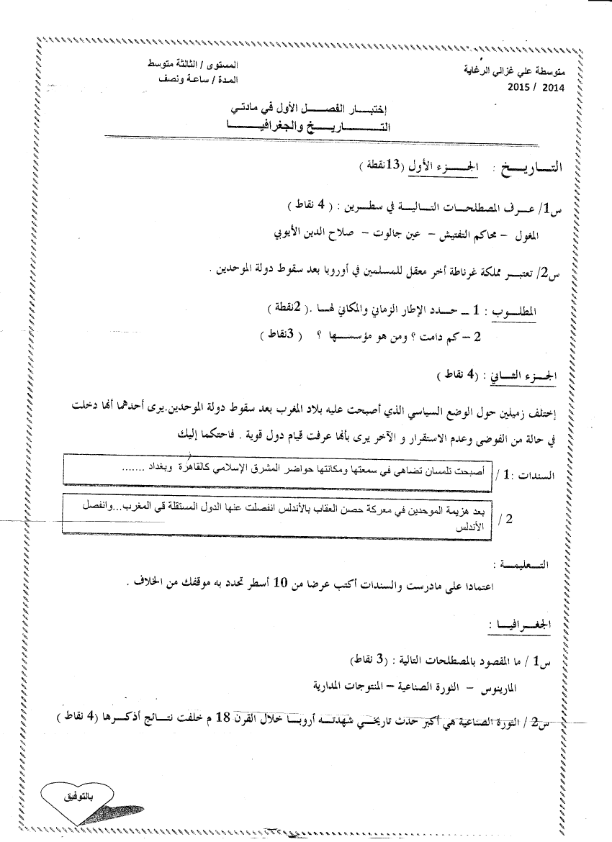 متوسطة علي غزالي الرغاية
المستوى / الثالثة متوسط
2014 / 2015
المدة / ساعة ونصف
إختبار الفصل الأول في مادتي
التاريخ والجغرافيا
التاريخ : الجزء الأول (13نقطة )
س1/ عرف المصطلحات التالية في سطرين : ( 4 نقاط )
المغول - محاكم التفتيش - عين جالوت - صلاح الدين الأيوبي
س2/ تعتبر مملكة غرناطة أخر معقل للمسلمين في أوروبا بعد سقوط دولة الموحدين .
المطلوب : 1 ــ حدد الإطار الزماني والمكاني لها .( 2نقطة )
2 - كم دامت ؟ ومن هو مؤسسها ؟ ( 3نقاط )
الجزء الثاني : (4 نقاط )
إختلف زميلين حول الوضع السياسي الذي أصبحت عليه بلاد المغرب بعد سقوط دولة الموحدين.يرى أحدهما أنها دخلت
في حالة من الفوضى وعدم الاستقرار و الآخر يرى بأنها عرفت قيام دول قوية . فاحتكما إليك
السندات : 1/ أصبحت تلمسان تضاهي في سمعتها ومكانتها حواضر المشرق الإسلامي كالقاهرة وبغداد .......
2 / بعد هزيمة الموحدين في معركة حصن العقاب بالأندلس انفصلت عنها الدول المستقلة في المغرب...وانفصل
الأندلس
التعليمة :
اعتمادا على مادرست والسندات أكتب عرضا من 10 أسطر تحدد به موقفك من الخلاف .
الجغرافيا :
س1 / ما المقصود بالمصطلحات التالية : (3 نقاط)
المارينوس - الثورة الصناعية – المنتوجات المدارية
س2 / الثورة الصناعية هي أكبر حدث تاريخي شهدته أروبا خلال القرن 18 م خلفت نتائج أذكرها (4 نقاط )
بالتوفيق